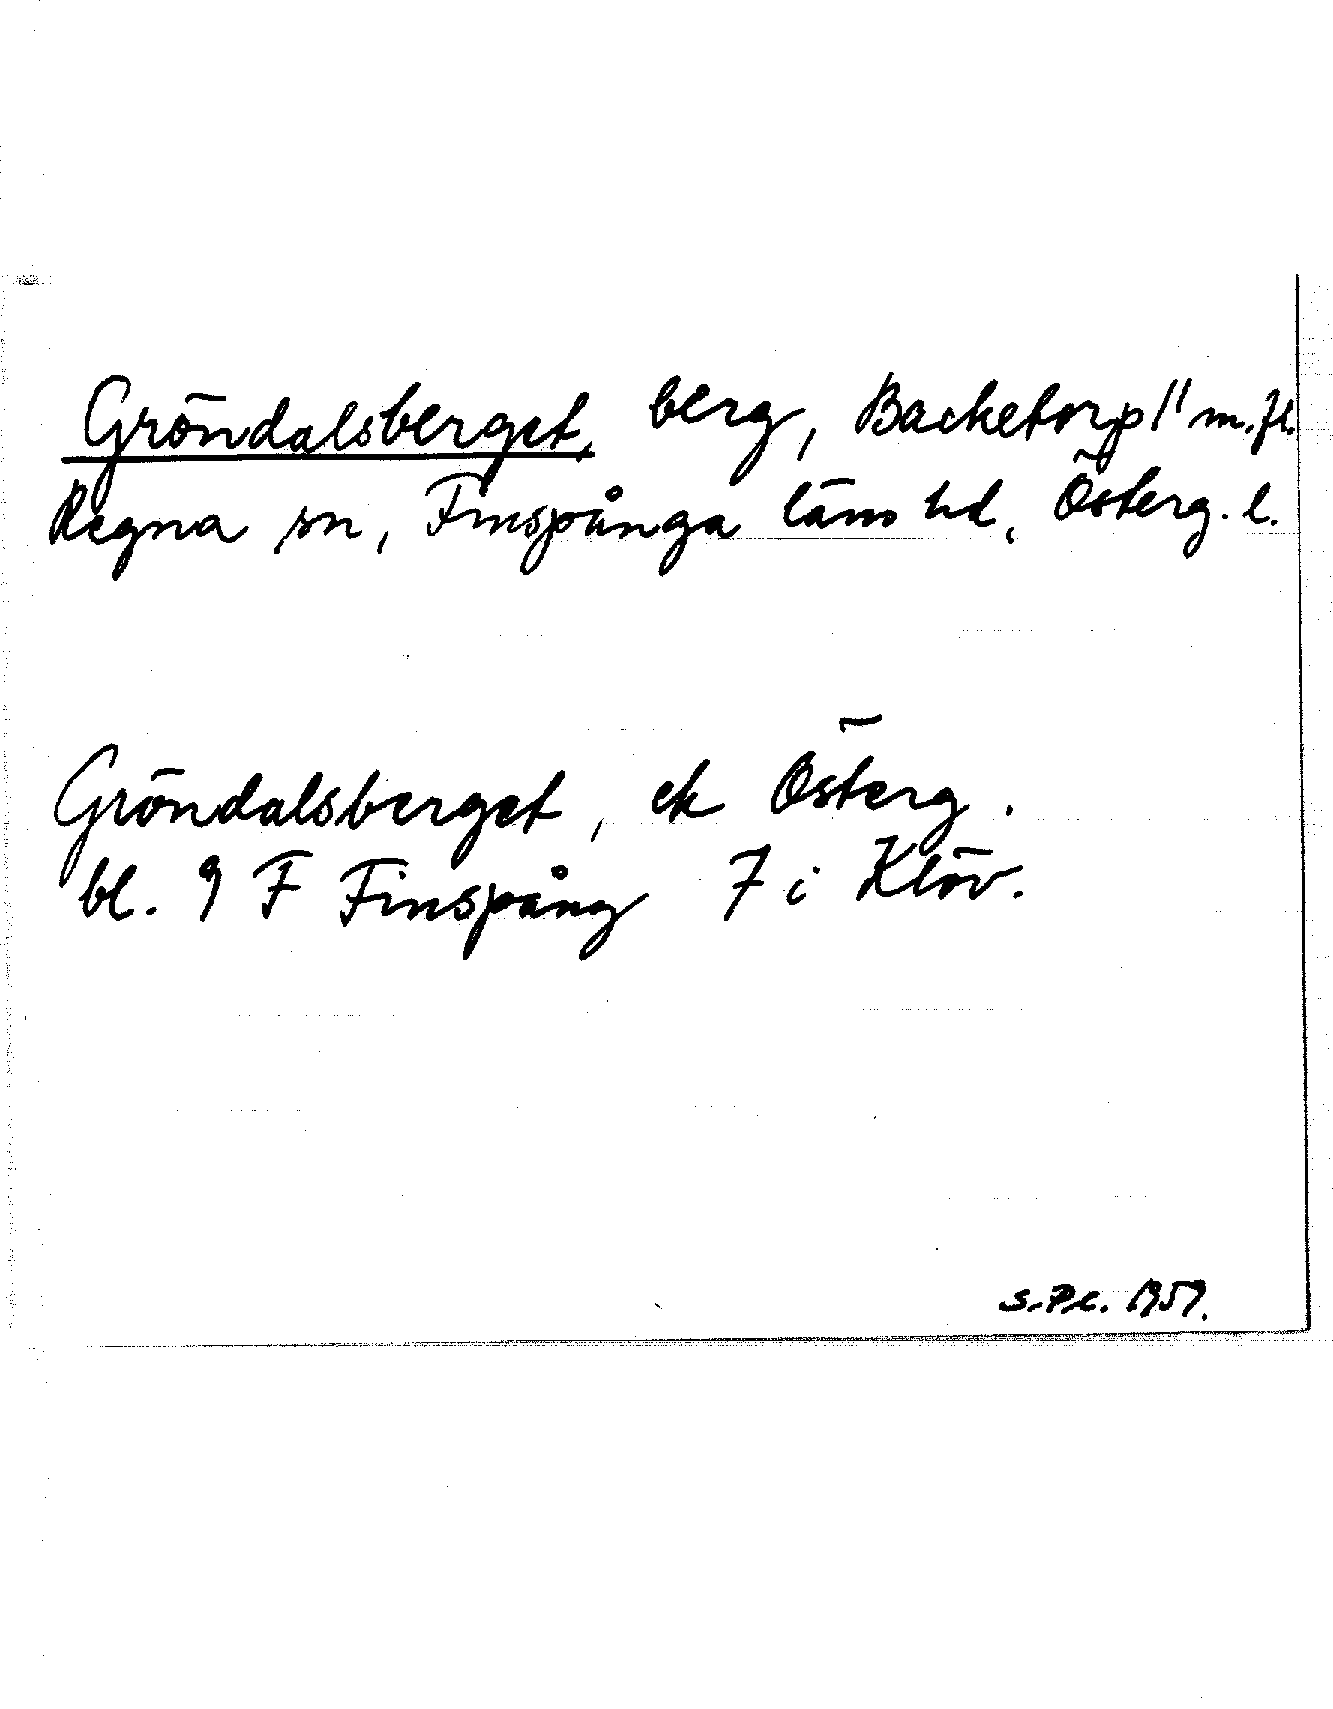 Gröndalsberget, berg, Backetorp 1¹ m.fl.
Regna sn, Finspånga läns hd, Österg. l.
Gröndalsberget, ek Österg.
bl. 9 F Finspång 7 i Klöv.
1959.